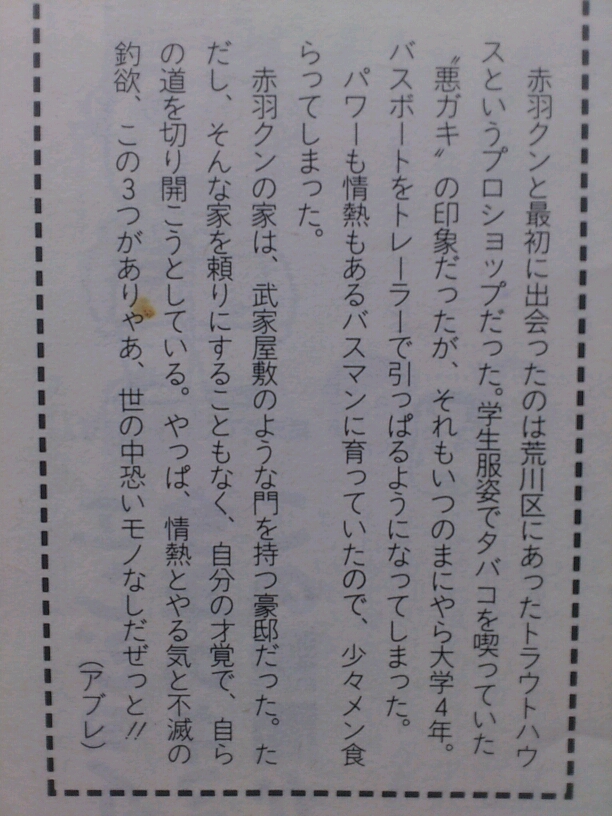 赤羽クンと最初に出会ったのは荒川区にあったトラウトハウ
スというプロショップだった。学生服姿でタバコを喫っていた
〝悪ガキ〟の印象だったが、それもいつのまにやら大学4年。
バスボートをトレーラーで引っぱるようになってしまった。
パワーも情熱もあるバスマンに育っていたので、少々メン食
らってしまった。
赤羽クンの家は、武家屋敷のような門を持つ豪邸だった。た
だし、そんな家を頼りにすることもなく、自分の才覚で、自ら
の道を切り開こうとしている。やっぱ、情熱とやる気と不滅の
釣欲、この3つがありゃあ、世の中恐いモノなしだぜっと!!
(アブレ)